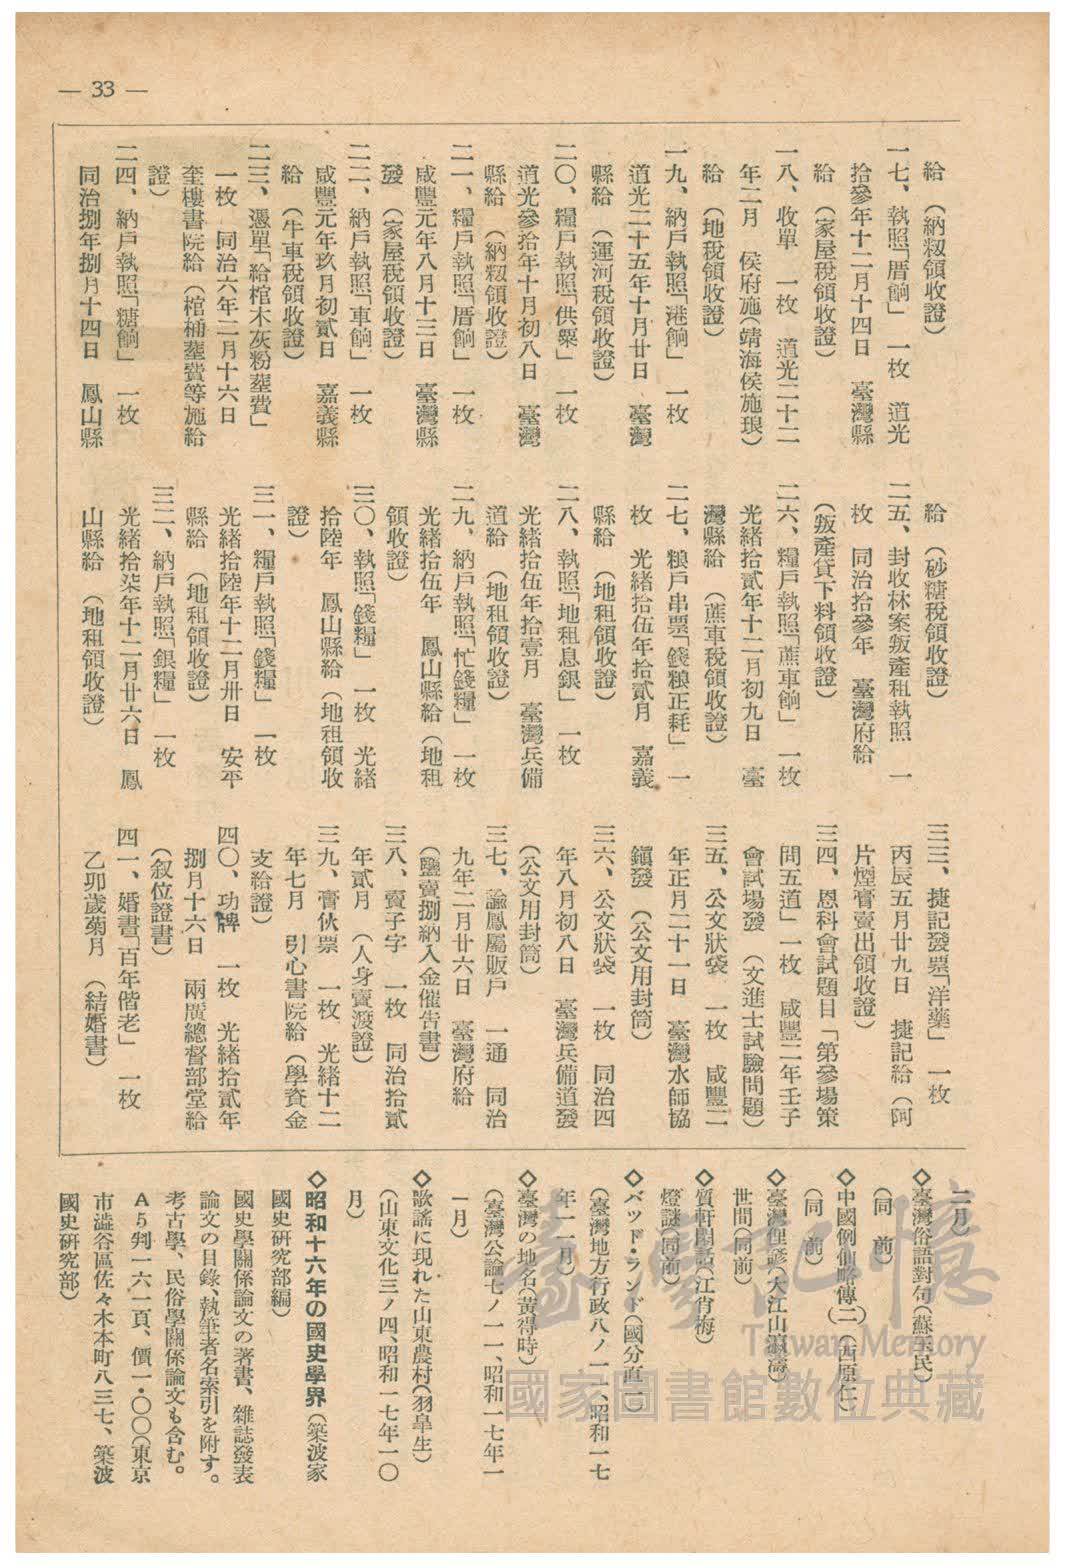 — 33 —
給　（納粄領收證）
一七、執照「厝餉」　一枚　道光
拾參年十二月十四日　臺灣縣
給　（家屋稅領收證）
一八、收單　一枚　道光二十二
年二月　侯府施（靖海侯施琅）
給　（地稅領收證）
一九、納戶執照「港餉」　一枚
道光二十五年十月廿日　臺灣
縣給　（運河稅領收證）
二〇、糧戶執照「供粟」　一枚
道光參拾年十月初八日　臺灣
縣給　（納粄領收證）
二一、糧戶執照「厝餉」　一枚
咸豐元年八月十三日　臺灣縣
發　（家屋稅領收證）
二二、納戶執照「車餉」　一枚
咸豐元年玖月初貳日　嘉義縣
給　（牛車稅領收證）
二三、憑單「給棺木灰粉塟費」
一枚　同治六年二月十六日
奎樓書院給（棺桶塟費等施給
證）
二四、納戶執照「糖餉」　一枚
同治捌年捌月十四日　鳳山縣
給　（砂糖稅領收證）
二五、封收林案叛產租執照　一
枚　同治拾參年　臺灣府給
（叛產貸下料領收證）
二六、糧戶執照「蔗車餉」　一枚
光緒拾貳年十二月初九日　臺
灣縣給　（蔗車稅領收證）
二七、粮戶串票「錢粮正耗」　一
枚　光緒拾伍年拾貳月　嘉義
縣給　（地租領收證）
二八、執照「地租息銀」　一枚
光緒拾伍年拾壹月　臺灣兵備
道給　（地租領收證）
二九、納戶執照「忙錢糧」　一枚
光緒拾伍年　鳳山縣給　（地租
領收證）
三〇、執照「錢糧」　一枚　光緒
拾陸年　鳳山縣給（地租領收
證）
三一、糧戶執照「錢糧」　一枚
光緒拾陸年十二月卅日　安平
縣給　（地租領收證）
三二、納戶執照「銀糧」　一枚
光緒拾柒年十二月廿六日　鳳
山縣給　（地租領收證）
三三、捷記發票「洋藥」　一枚
丙辰五月廿九日　捷記給（阿
片煙膏賣出領收證）
三四、恩科會試題目「第參場策
問五道」一枚　咸豐二年壬子
會試場發　（文進士試驗問題）
三五、公文狀袋　一枚　咸豐二
年正月二十一日　臺灣水師協
鎮發　（公文用封筒）
三六、公文狀袋　一枚　同治四
年八月初八日　臺灣兵備道發
（公文用封筒）
三七、諭鳳屬販戶　一通　同治
九年二月廿六日　臺灣府給
（鹽賣捌納入金催告書）
三八、賣子字　一枚　同治拾貳
年貳月　（人身賣渡證）
三九、膏伙票　一枚　光緒十二
年七月　引心書院給（學資金
支給證）
四〇、功牌　一枚　光緒拾貳年
捌月十六日　兩廣總督部堂給
（叙位證書）
四一、婚書「百年偕老」　一枚
乙卯歲菊月　（結婚書）
二月）
◇臺灣俗語對句（蘇王民）
（同　前）
◇中國列仙略傳（二）（西原仁）
（同　前）
◇臺灣俚諺（大江山瀛濤）
世間（同前）
◇質軒閑話（江肖梅）
燈謎（同前）
◇バッド・ランド（國分直一）
（臺灣地方行政八ノ一一、昭和一七
年一一月）
◇臺灣の地名（黃得時）
（臺灣公論七ノ一一、昭和一七年一
一月）
◇歌謠に現れた山東農村（羽皐生）
（山東文化三ノ四、昭和一七年一〇
月）
◇昭和十六年の國史學界（築波家
國史研究部編）
國史學關係論文の著書、雜誌發表
論文の目錄、執筆者名索引を附す。
考古學、民俗學關係論文も含む。
Ａ５判一六一頁、價一・〇〇（東京
市澁谷區佐々木本町八三七、築波
國史研究部）
臺灣記憶
Taiwan Memory
國家圖書館數位典藏